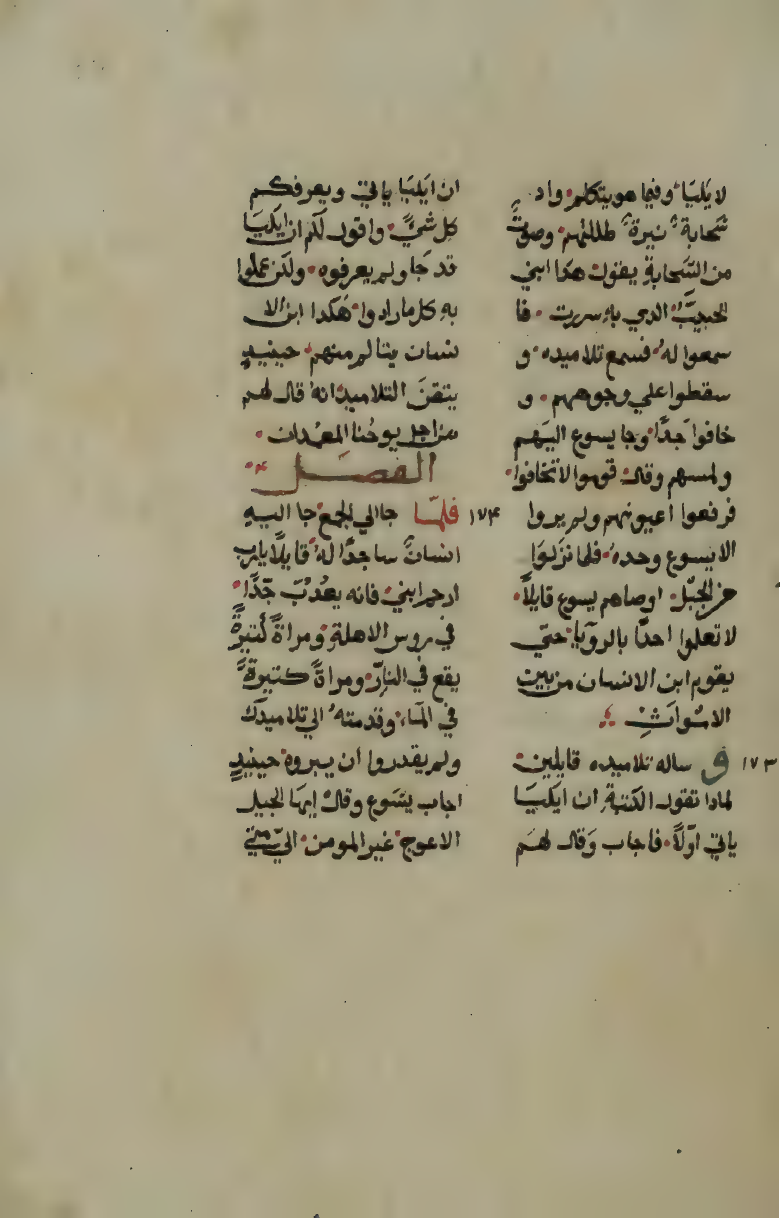 لايَليَا وفيما هو يتكلم واد
سَحابة نيرة ظللتهم وصوت
من السَحابة يقول هدا ابني
الحبيبُ الدي به سررت فا
سمعوا له فسمع تلاميده و
سقطوا علي وجوههم و
خافوا جَدًا وجا يسوع اليَهم
ولمسهم وقال قوموا لاتخافوا
فرفعوا اعيونهم ولم يروا
الا يسوع وحده فلما نزلوَا
من الجبَل اوصاهم يسوع قايلاً
لاتعلموا احدًا بالرويا حتيَ
يقوم ابن الانسان من بين
الامَواتِ
١٧٣ و ساله تلاميده قايلين
لمادا تقول الكتبة ان ايَليَا
ياتي اوَلاً فاجاب وَقال لهَم
ان ايَليَا ياتي ويعرفكم
كل شيً واقول لكم ان ايَليَا
قد جَا ولم يعرفوه ولكن عملوا
به كل ما رادوا هَكدا ابن الا
نسان يتالم منهم حينيدٍ
يتقنَ التلاميد انه قال لهم
من اجل يوحَنا المعَمدان
الفصَل
١٧٤ فلمّا جا الي الجمع جا اليهِ
انسانٌ ساجدًا له قايلاً يارب
ارحم ابني فانه يعُدبَ جَدًا
في روس الاهلة ومراةً كتيرةً
يقع في النارِ ومراةً كتيرةً
في المَاء وقدمته الي تلاميدك
ولم يقدروا ان يبروه حينيدٍ
اجاب يسَوع وقال ايهَا الجيل
الاعوج غير المومن اليَ متي